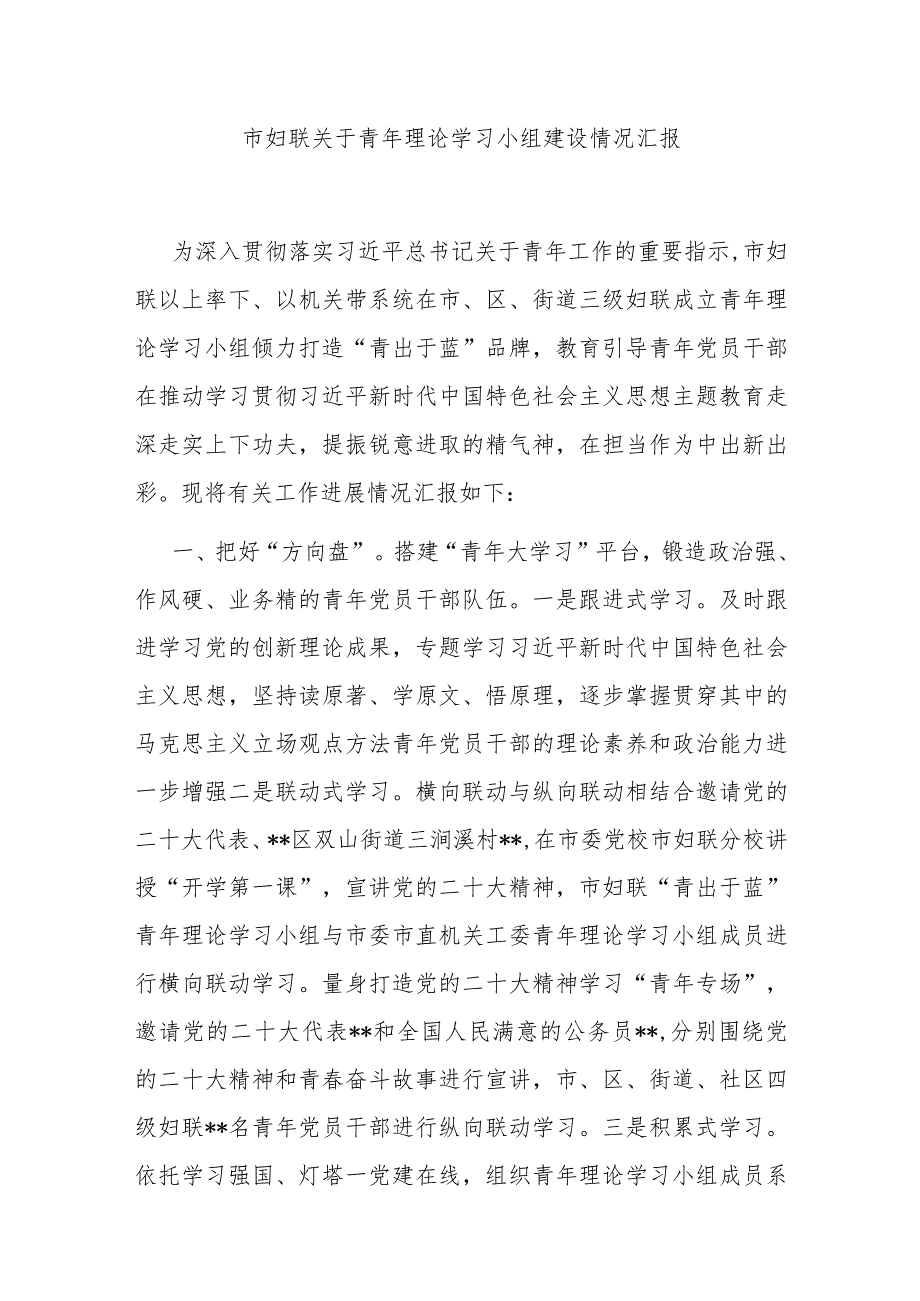 市妇联关于青年理论学习小组建设情况汇报
为深入贯彻落实习近平总书记关于青年工作的重要指示,市妇
联以上率下、以机关带系统在市、区、街道三级妇联成立青年理
论学习小组倾力打造“青出于蓝”品牌，教育引导青年党员干部
在推动学习贯彻习近平新时代中国特色社会主义思想主题教育走
深走实上下功夫，提振锐意进取的精气神，在担当作为中出新出
彩。现将有关工作进展情况汇报如下：
一、把好“方向盘”。搭建“青年大学习”平台，锻造政治强、
作风硬、业务精的青年党员干部队伍。一是跟进式学习。及时跟
进学习党的创新理论成果，专题学习习近平新时代中国特色社会
主义思想，坚持读原著、学原文、悟原理，逐步掌握贯穿其中的
马克思主义立场观点方法青年党员干部的理论素养和政治能力进
一步增强二是联动式学习。横向联动与纵向联动相结合邀请党的
二十大代表、**区双山街道三涧溪村**,在市委党校市妇联分校讲
授“开学第一课”，宣讲党的二十大精神，市妇联“青出于蓝”
青年理论学习小组与市委市直机关工委青年理论学习小组成员进
行横向联动学习。量身打造党的二十大精神学习“青年专场”，
邀请党的二十大代表**和全国人民满意的公务员**,分别围绕党
的二十大精神和青春奋斗故事进行宣讲，市、区、街道、社区四
级妇联**名青年党员干部进行纵向联动学习。三是积累式学习。
依托学习强国、灯塔一党建在线，组织青年理论学习小组成员系